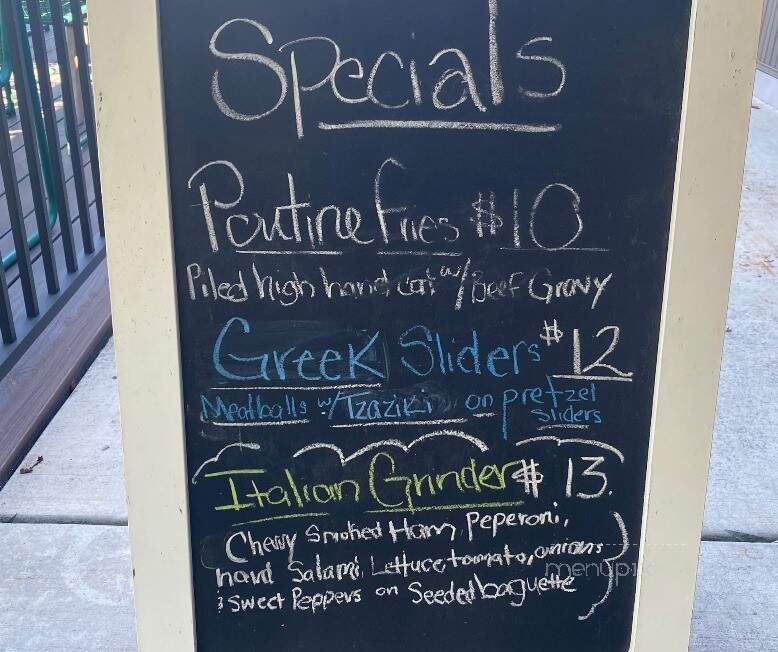 Specials
Poutine Fries $10
Piled high hand cut w/ Beef Gravy
Greek Sliders $12
Meatballs w/ Tzaziki on pretzel
Sliders
Italian Grinder $13.
Cherry Smoked Ham, Peperoni,
hard Salami, Lettuce, tomato, onions
& Sweet Peppers on Seeded baguette